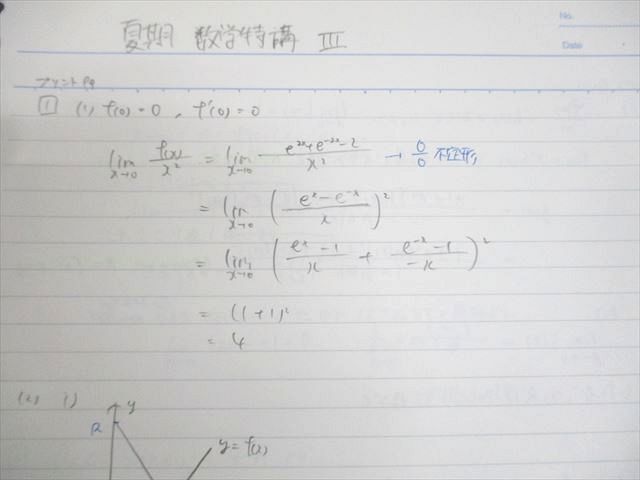 No.
Date
夏期 数学特講 III
プリントP9
1 (1) f(0)=0 , f'(0)=0
lim x→0 f(x)/x² = lim x→0 (e^{2x}+e^{-2x}-2)/x² → 0/0 不定形
= lim x→0 ((e^x-e^{-x})/x)²
= lim x→0 ((e^x-1)/x + (e^{-x}-1)/-x)²
= (1+1)²
= 4
(2) i)
y
y=f(x)